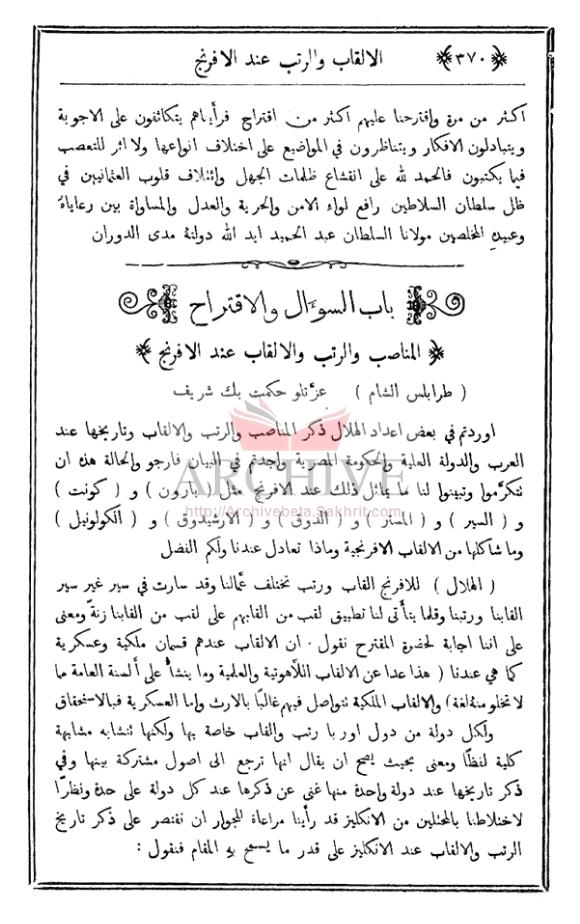 ﴿ ٣٧٠ ﴾ الالقاب والرتب عند الافرنج
اكثر من مرة واقترحنا عليهم اكثر من اقتراح فرأيناهم يتكاثفون على الاجوبة
ويتبادلون الافكار ويتناظرون في المواضيع على اختلاف انواعها ولا اثر للتعصب
فيما يكتبون فالحمد لله على انقشاع ظلمات الجهل وائتلاف قلوب العثمانيين في
ظل سلطان السلاطين رافع لواء الامن والحرية والعدل والمساواة بين رعاياهُ
وعبيدهِ المخلصين مولانا السلطان عبد الحميد ايد الله دولتهُ مدى الدوران
باب السوءَال والاقتراح
﴿ المناصب والرتب والالقاب عند الافرنج ﴾
( طرابلس الشام ) عزتلو حكمت بك شريف
اوردتم في بعض اعداد الهلال ذكر المناصب والرتب والالقاب وتاريخها عند
العرب والدولة العلية والحكومة المصرية واجدتم في البيان فارجو والحالة هذه ان
تتكرَّموا وتبينوا لنا ما يماثل ذلك عند الافرنج مثل ( بارون ) و ( كونت )
و ( السير ) و ( المستر ) و ( الدوق ) و ( الارشيدوق ) و ( الكولونيل )
وما شاكلها من الالقاب الافرنجية وماذا تعادل عندنا ولكم الفضل
( الهلال ) للافرنج القاب ورتب تختلف عمَّا لنا وقد سارت في سير غير سير
القابنا ورتبنا وقلما يتأَتى لنا تطبيق لقب من القابهم على لقب من القابنا زنةً ومعنى
على اننا اجابة لحضرة المقترح نقول . ان الالقاب عندهم قسمان ملكية وعسكرية
كما هي عندنا ( هذا عدا عن الالقاب اللاهوتية والعلمية وما ينشأُ على أَلسنة العامة مما
لا تخلو منهُ لغة ) والالقاب الملكية تتواصل فيهم غالبًا بالارث واما العسكرية فبالاستحقاق
ولكل دولة من دول اوربا رتب والقاب خاصة بها ولكنها تتشابه مشابهة
كلية لفظًا ومعنى بحيث يصح ان يقال انها ترجع الى اصول مشتركة بينها وفي
ذكر تاريخها عند دولة واحدة منها غنى عن ذكرها عند كل دولة على حدة ونظرًا
لاختلاطنا بالمحتلين من الانكليز قد رأَينا مراعاة للجوار ان نقتصر على ذكر تاريخ
الرتب والالقاب عند الانكليز على قدر ما يسمح بهِ المقام فنقول :
ARCHIVE
http://Archivebeta.Sakhrit.com